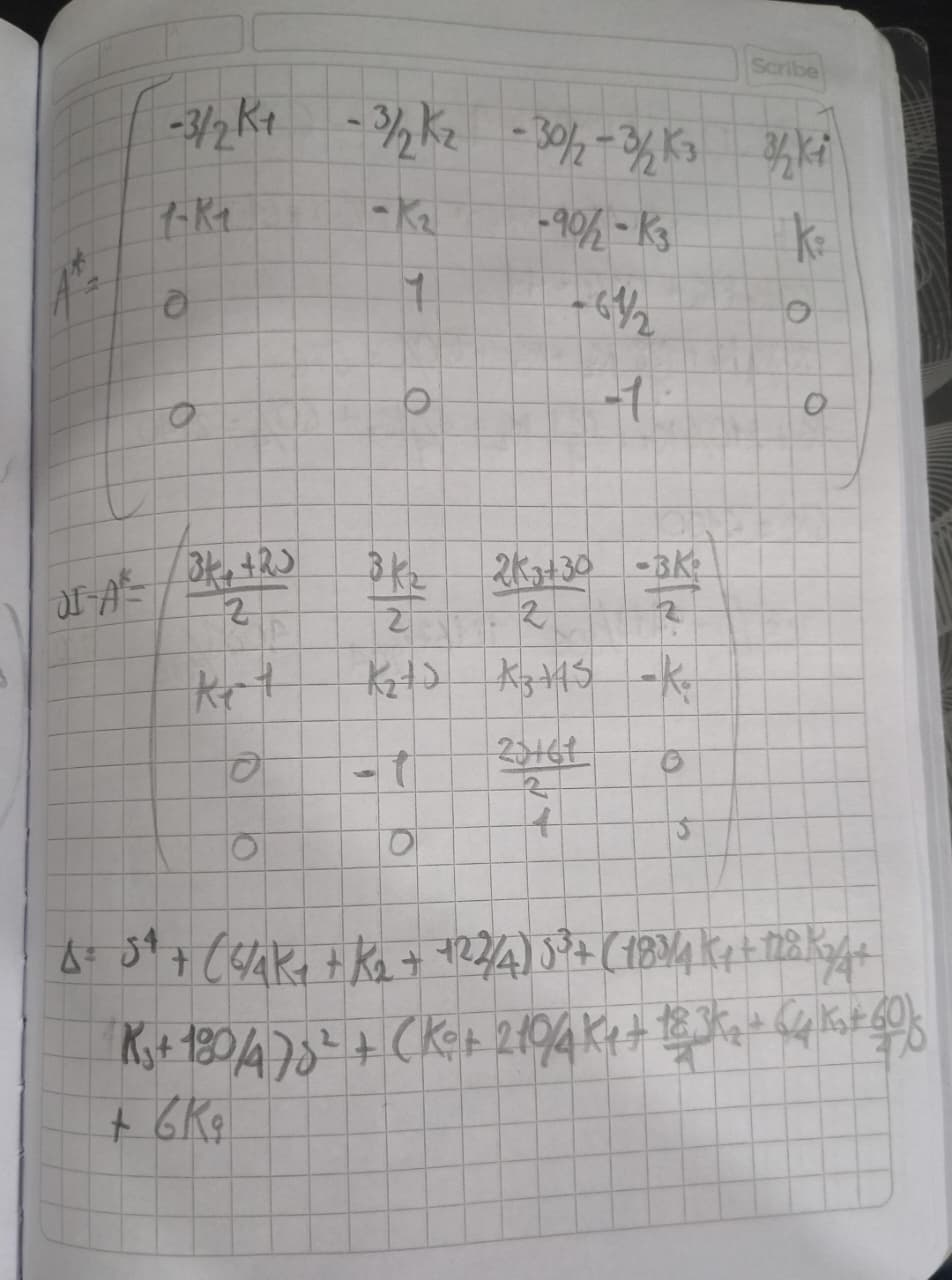 Scribe
-3/2K1 -3/2K2 -30/2-3/2K3 3/2Ki
1-K1 -K2 -90/2-K3 Ki
A*=
0 1 -61/2 0
0 0 -1 0
sI-A*= (3K1+2s)/2 3K2/2 (2K3+30)/2 -3Ki/2
K1-1 K2+s K3+45 -Ki
0 -1 (2s+61)/2 0
0 0 1 s
Δ= s⁴ + (6/4K1 + K2 + 122/4)s³ + (183/4K1 + 128K2/4 +
K3 + 180/4)s² + (Ki + 210/4K1 + 183/4K2 + 6/4K3 + 60/4)s
+ 6Ki